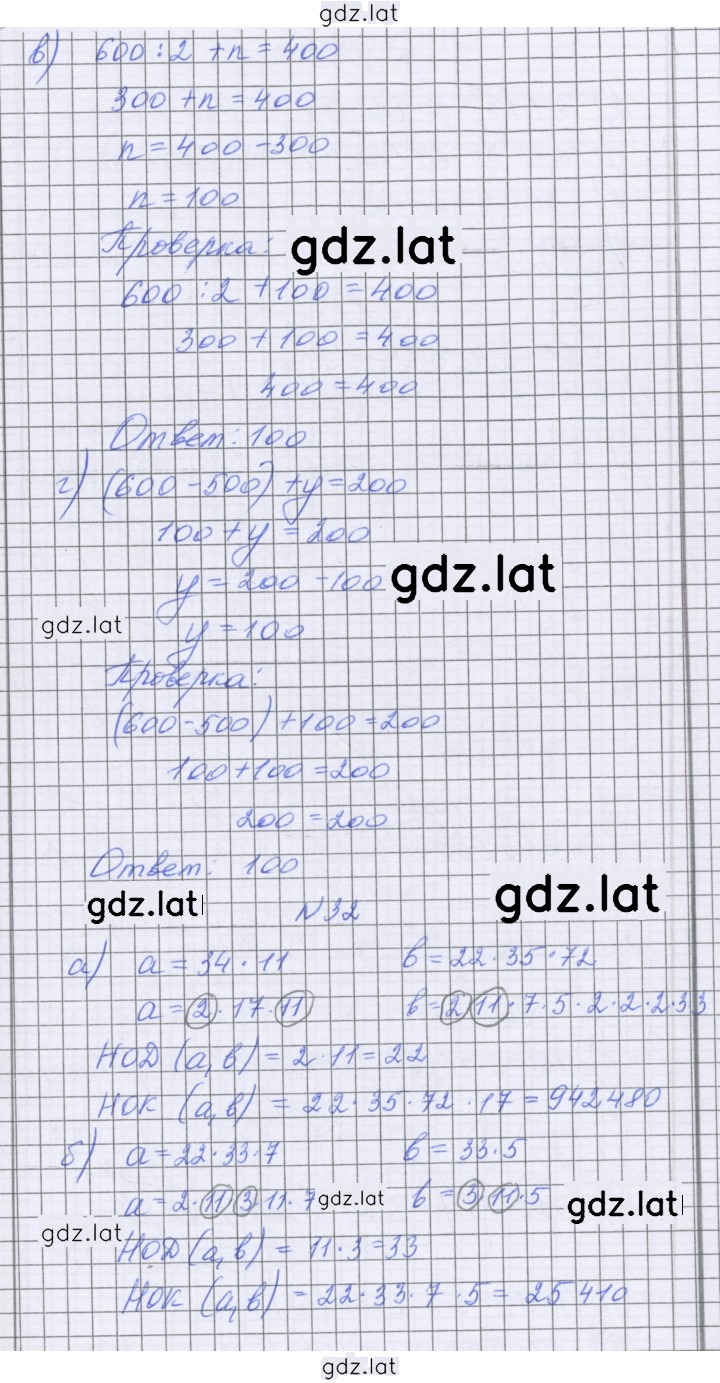 gdz.lat
в) 600 : 2 + n = 400
300 + n = 400
n = 400 - 300
n = 100
Проверка: gdz.lat
600 : 2 + 100 = 400
300 + 100 = 400
400 = 400
Ответ: 100
г) (600 - 500) + y = 200
100 + y = 200
y = 200 - 100 gdz.lat
gdz.lat y = 100
Проверка:
(600 - 500) + 100 = 200
100 + 100 = 200
200 = 200
Ответ: 100
gdz.lat N 32 gdz.lat
а) a = 34 · 11 b = 22 · 35 · 72
a = 2 · 17 · 11 b = 2 11 · 7 · 5 · 2 · 2 · 2 · 3 3
НОД (a, b) = 2 · 11 = 22
НОК (a, b) = 22 · 35 · 72 · 17 = 942480
б) a = 22 · 33 · 7 b = 33 · 5
a = 2 · 11 3 · 11 · 7 gdz.lat b = 3 11 · 5 gdz.lat
gdz.lat НОД (a, b) = 11 · 3 = 33
НОК (a, b) = 22 · 33 · 7 · 5 = 25410
gdz.lat